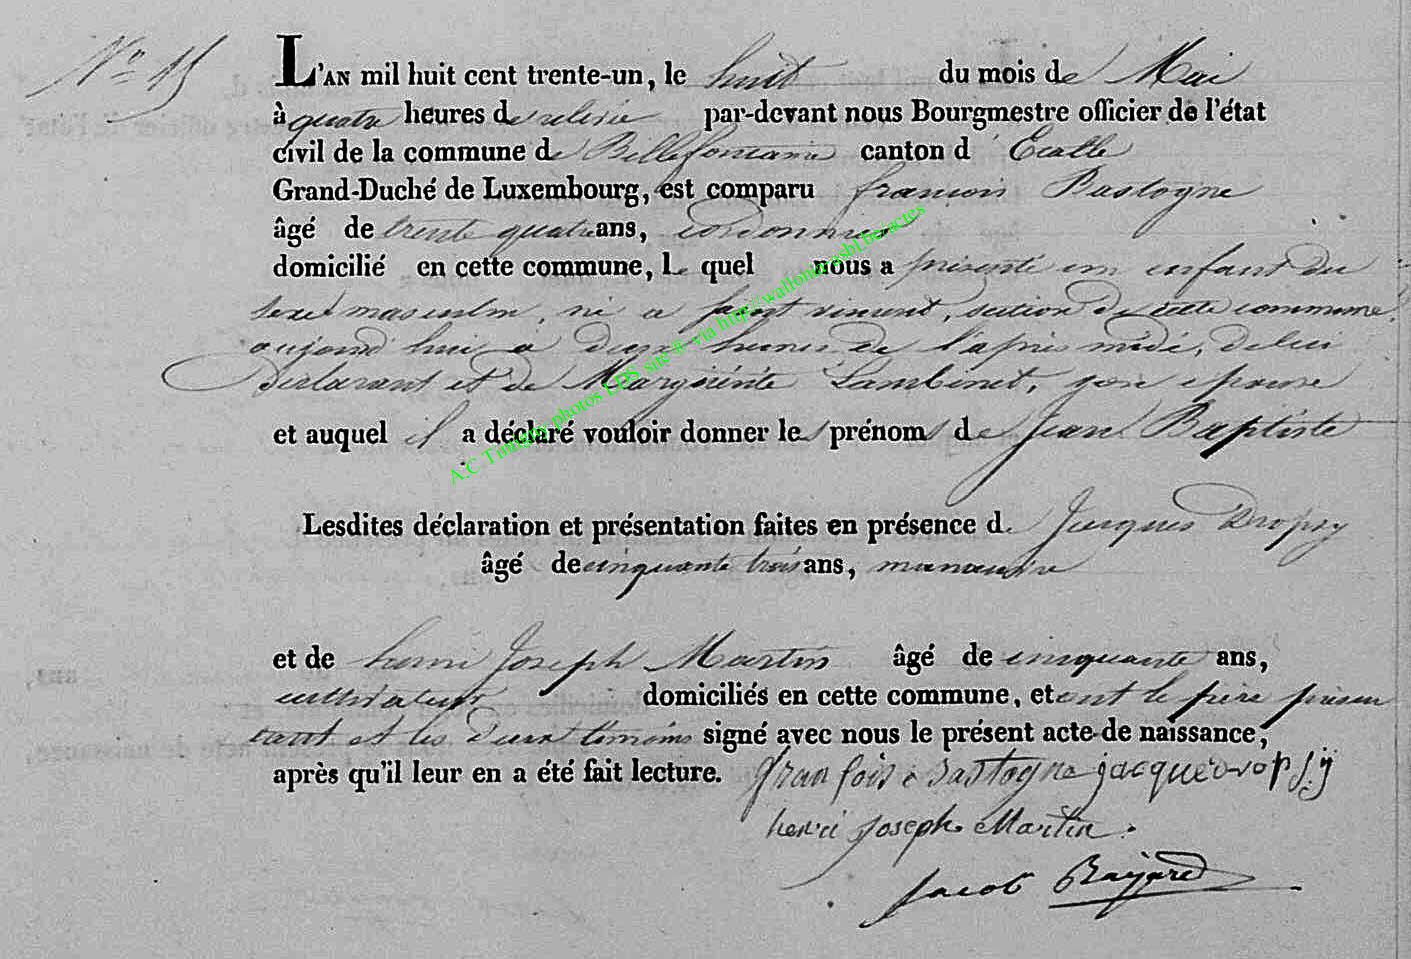 N° 15
L'AN mil huit cent trente-un, le huit du mois de Mai
à quatre heures de relevée par-devant nous Bourgmestre officier de l'état
civil de la commune de Bellefontaine canton d'Etalle
Grand-Duché de Luxembourg, est comparu francois Bastogne
âgé de trente quatre ans, cordonnier
domicilié en cette commune, Le quel nous a présenté un enfant du
sexe masculin, né a saint vincent, section de cette commune,
aujourd'hui a deux heures de l'après midi, de lui
Déclarant et de Margueritte Lambinet, son epouse
et auquel il a déclaré vouloir donner les prénoms de Jean Baptiste
Lesdites déclaration et présentation faites en présence de Jacques Dropsy
âgé de cinquante trois ans, manœuvre
et de henri Joseph Martin âgé de cinquante ans,
cultivateur domiciliés en cette commune, et ont le père présen
tant et les deux témoins signé avec nous le présent acte de naissance,
après qu'il leur en a été fait lecture. franfois Bastogne jacque dropsÿ
henri joseph Martin.
Jacob
A.C Tintigny photos LDS site ® via http://wallonia.asbl.be/actes